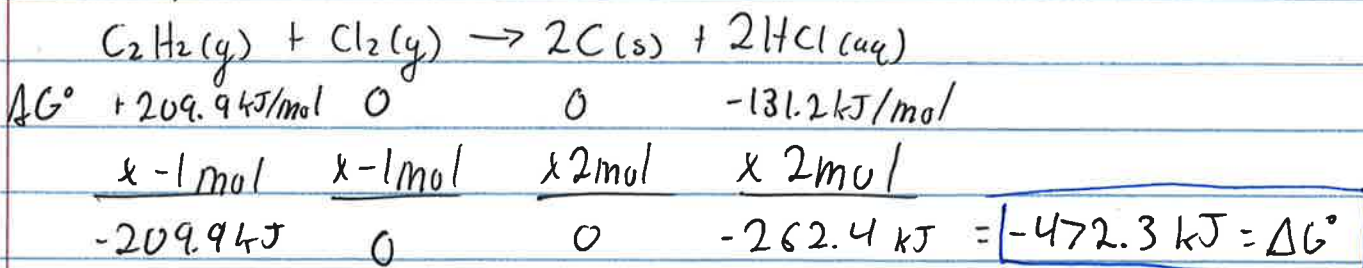 C₂H₂(g) + Cl₂(g) → 2C(s) + 2HCl(aq)
ΔG° +209.9kJ/mol 0 0 -131.2kJ/mol
x -1mol x -1mol x 2mol x 2mol
-209.9kJ 0 0 -262.4 kJ = -472.3 kJ = ΔG°